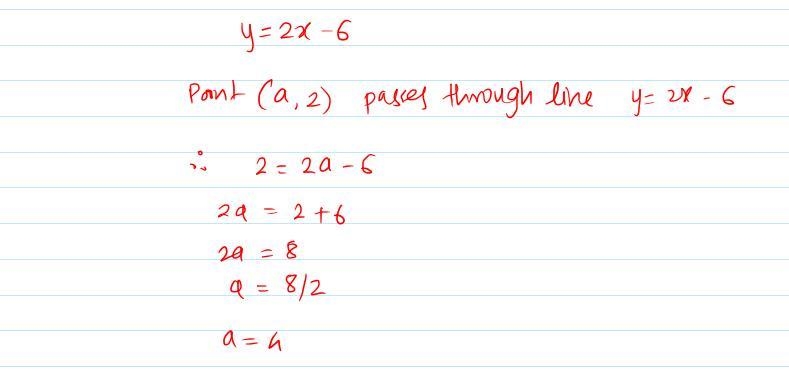 y = 2x - 6
Point (a, 2) passes through line y = 2x - 6
∴ 2 = 2a - 6
2a = 2 + 6
2a = 8
a = 8/2
a = 4